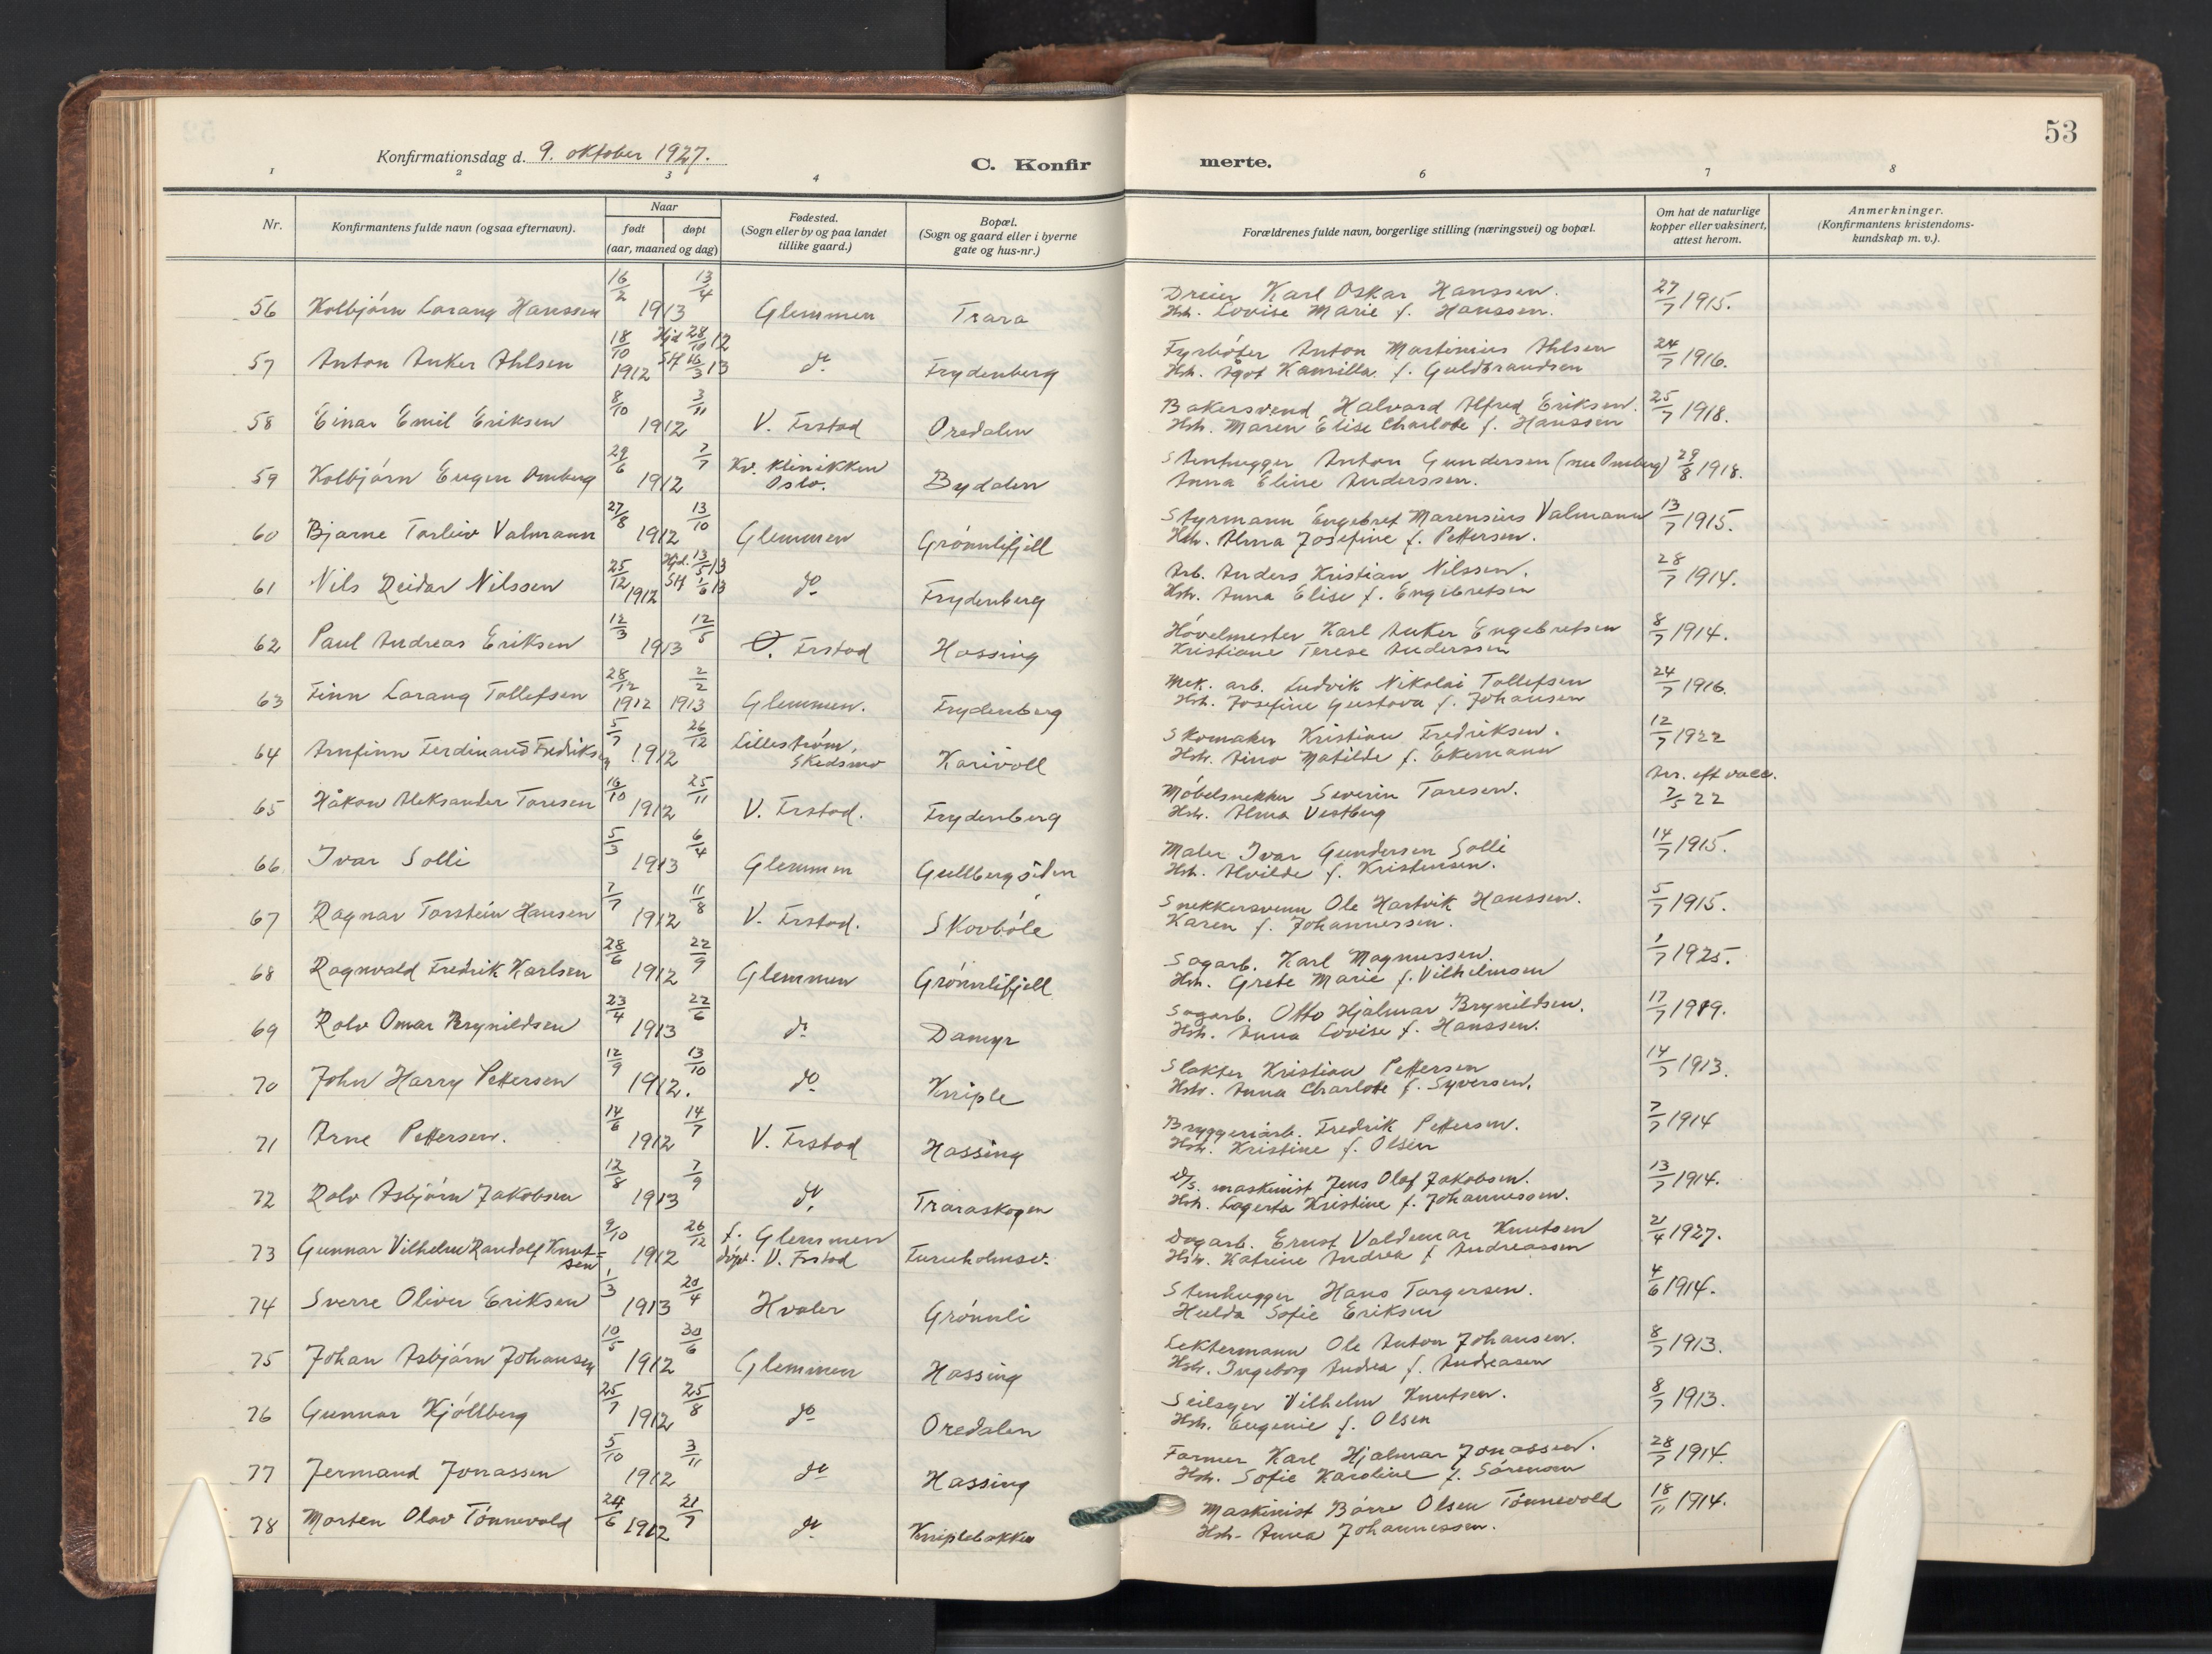 53
Konfirmationsdag d. 9. oktober 1927.
C. Konfirmerte.
1 2 3 4 6 7 8
Nr.
Konfirmantens fulde navn (ogsaa efternavn).
Naar
født døpt
(aar, maaned og dag)
Fødested.
(Sogn eller by og paa landet
tillike gaard.)
Bopæl.
(Sogn og gaard eller i byerne
gate og hus-nr.)
Forældrenes fulde navn, borgerlige stilling (næringsvei) og bopæl.
Om hat de naturlige
kopper eller vaksinert,
attest herom.
Anmerkninger.
(Konfirmantens kristendoms-
kundskap m. v.).
56 Kolbjørn Lorang Hanssen 16/2 13/4 1913 Glemmen Trara Dreier Karl Oskar Hanssen. 27/7 1915.
Hstr. Lovise Marie f. Hanssen.
57 Anton Anker Ahlsen 18/10 1912 Hjd 28/10 12 do Frydenberg Fyrbøter Anton Martinius Ahlsen 24/7 1916.
SH 16/3 13 Hstr. Ågot Kamilla f. Guldbrandsen
58 Einar Emil Eriksen 8/10 3/11 1912 V. Frstad Oredalen Bakersvend Halvard Alfred Eriksen. 25/7 1918.
Hstr. Maren Elise Charlotte f. Hanssen
59 Kolbjørn Eugen Omberg 29/6 7/7 1912 Kv. klinikken Bydalen Stenhugger Anton Gundersen (nu Omberg) 29/8 1918.
Oslo. Anna Eline Anderssen.
60 Bjarne Torleiv Valmann 27/8 13/10 1912 Glemmen Grønnlifjell Styrmann Engebret Marensius Valmann 13/7 1915.
Hstr. Alma Josefine f. Pettersen.
61 Nils Reidar Nilssen 25/12 1912 Hjd. 13/5 13 do Frydenberg Arb. Anders Kristian Nilssen. 28/7 1914.
SH 1/6 13 Hstr. Anna Elise f. Engebretsen
62 Paul Andreas Eriksen 12/3 12/5 1913 Ø. Frstad Hassing Høvelmester Karl Anker Engebretsen 8/7 1914.
Kristiane Terese Anderssen
63 Finn Lorang Tollefsen 28/12 1912 2/2 1913 Glemmen. Frydenberg Mek. arb. Ludvik Nikolai Tollefsen 24/7 1916.
Hstr. Josefine Gustava f. Johansen
64 Arnfinn Ferdinand Fredriksen 5/7 26/12 1912 Lillestrøm, Karivoll Skomaker Kristian Fredriksen. 12/7 1922
Skedsmo Hstr. Aino Matilde f. Ekemann
65 Håkon Aleksander Toresen 16/10 25/11 1912 V. Frstad. Frydenberg Møbelsnekker Severin Toresen. Anr. eft vacc. 2/5 22
Hstr. Alma Vestberg
66 Ivar Solli 5/3 6/4 1913 Glemmen Gullbergsiden Maler Ivar Gundersen Solli 14/7 1915.
Hstr. Alvilde f. Kristensen.
67 Ragnar Torstein Hansen 7/7 11/8 1912 V. Frstad. Skovbøle Snekkersvenn Ole Hartvik Hanssen. 5/7 1915.
Karen f. Johannessen.
68 Ragnvald Fredrik Karlsen 28/6 22/9 1912 Glemmen Grønnlifjell Sagarb. Karl Magnussen. 1/7 1925.
Hstr. Grete Marie f. Vilhelmsen
69 Rolv Omar Brynildsen 23/4 22/6 1913 do Damyr Sagarb. Otto Hjalmar Brynildsen. 17/7 1919.
Hstr. Anna Lovise f. Hanssen.
70 John Harry Pettersen 12/9 13/10 1912. do Kniple Slakter Kristian Pettersen 14/7 1913.
Hstr. Anna Charlotte f. Syversen.
71 Arne Pettersen. 14/6 14/7 1912 V. Frstad Hassing Bryggeriarb. Fredrik Pettersen. 7/7 1914
Hstr. Kristine f. Olsen
72 Rolv Asbjørn Jakobsen 12/8 7/9 1913 do Traraskogen D/s. maskinist Jens Olaf Jakobsen. 13/7 1914.
Hstr. Lagerta Kristine f. Johannessen.
73 Gunnar Vilhelm Randolf Knut= 9/10 26/12 1912 f. Glemmen Furuholmsv. Dagarb. Ernst Valdemar Knutsen 21/4 1927.
sen døpt. V. Frstad Hstr. Katrine Andrea f. Andreassen
74 Sverre Oliver Eriksen 1/3 20/4 1913 Hvaler Grønnli Stenhugger Hans Torgersen. 4/6 1914.
Hulda Sofie Eriksen
75 Johan Asbjørn Johansen 10/5 30/6 1912 Glemmen Hassing Lektermann Ole Anton Johansen. 8/7 1913.
Hstr. Ingeborg Andrea f. Andreasen
76 Gunnar Kjøllberg 25/7 25/8 1912 do Oredalen Seilsyer Vilhelm Knutsen. 8/7 1913.
Hstr. Eugenie f. Olsen
77 Jermand Jonassen 5/10 3/11 1912 do Hassing Former Karl Hjalmar Jonassen. 28/7 1914.
Hstr. Sofie Karoline f. Sørensen
78 Morten Olav Tønnevold 24/6 21/7 1912 do Kniplebakken Maskinist Børre Olsen Tønnevold 18/11 1914.
Hstr. Anna Johannessen.